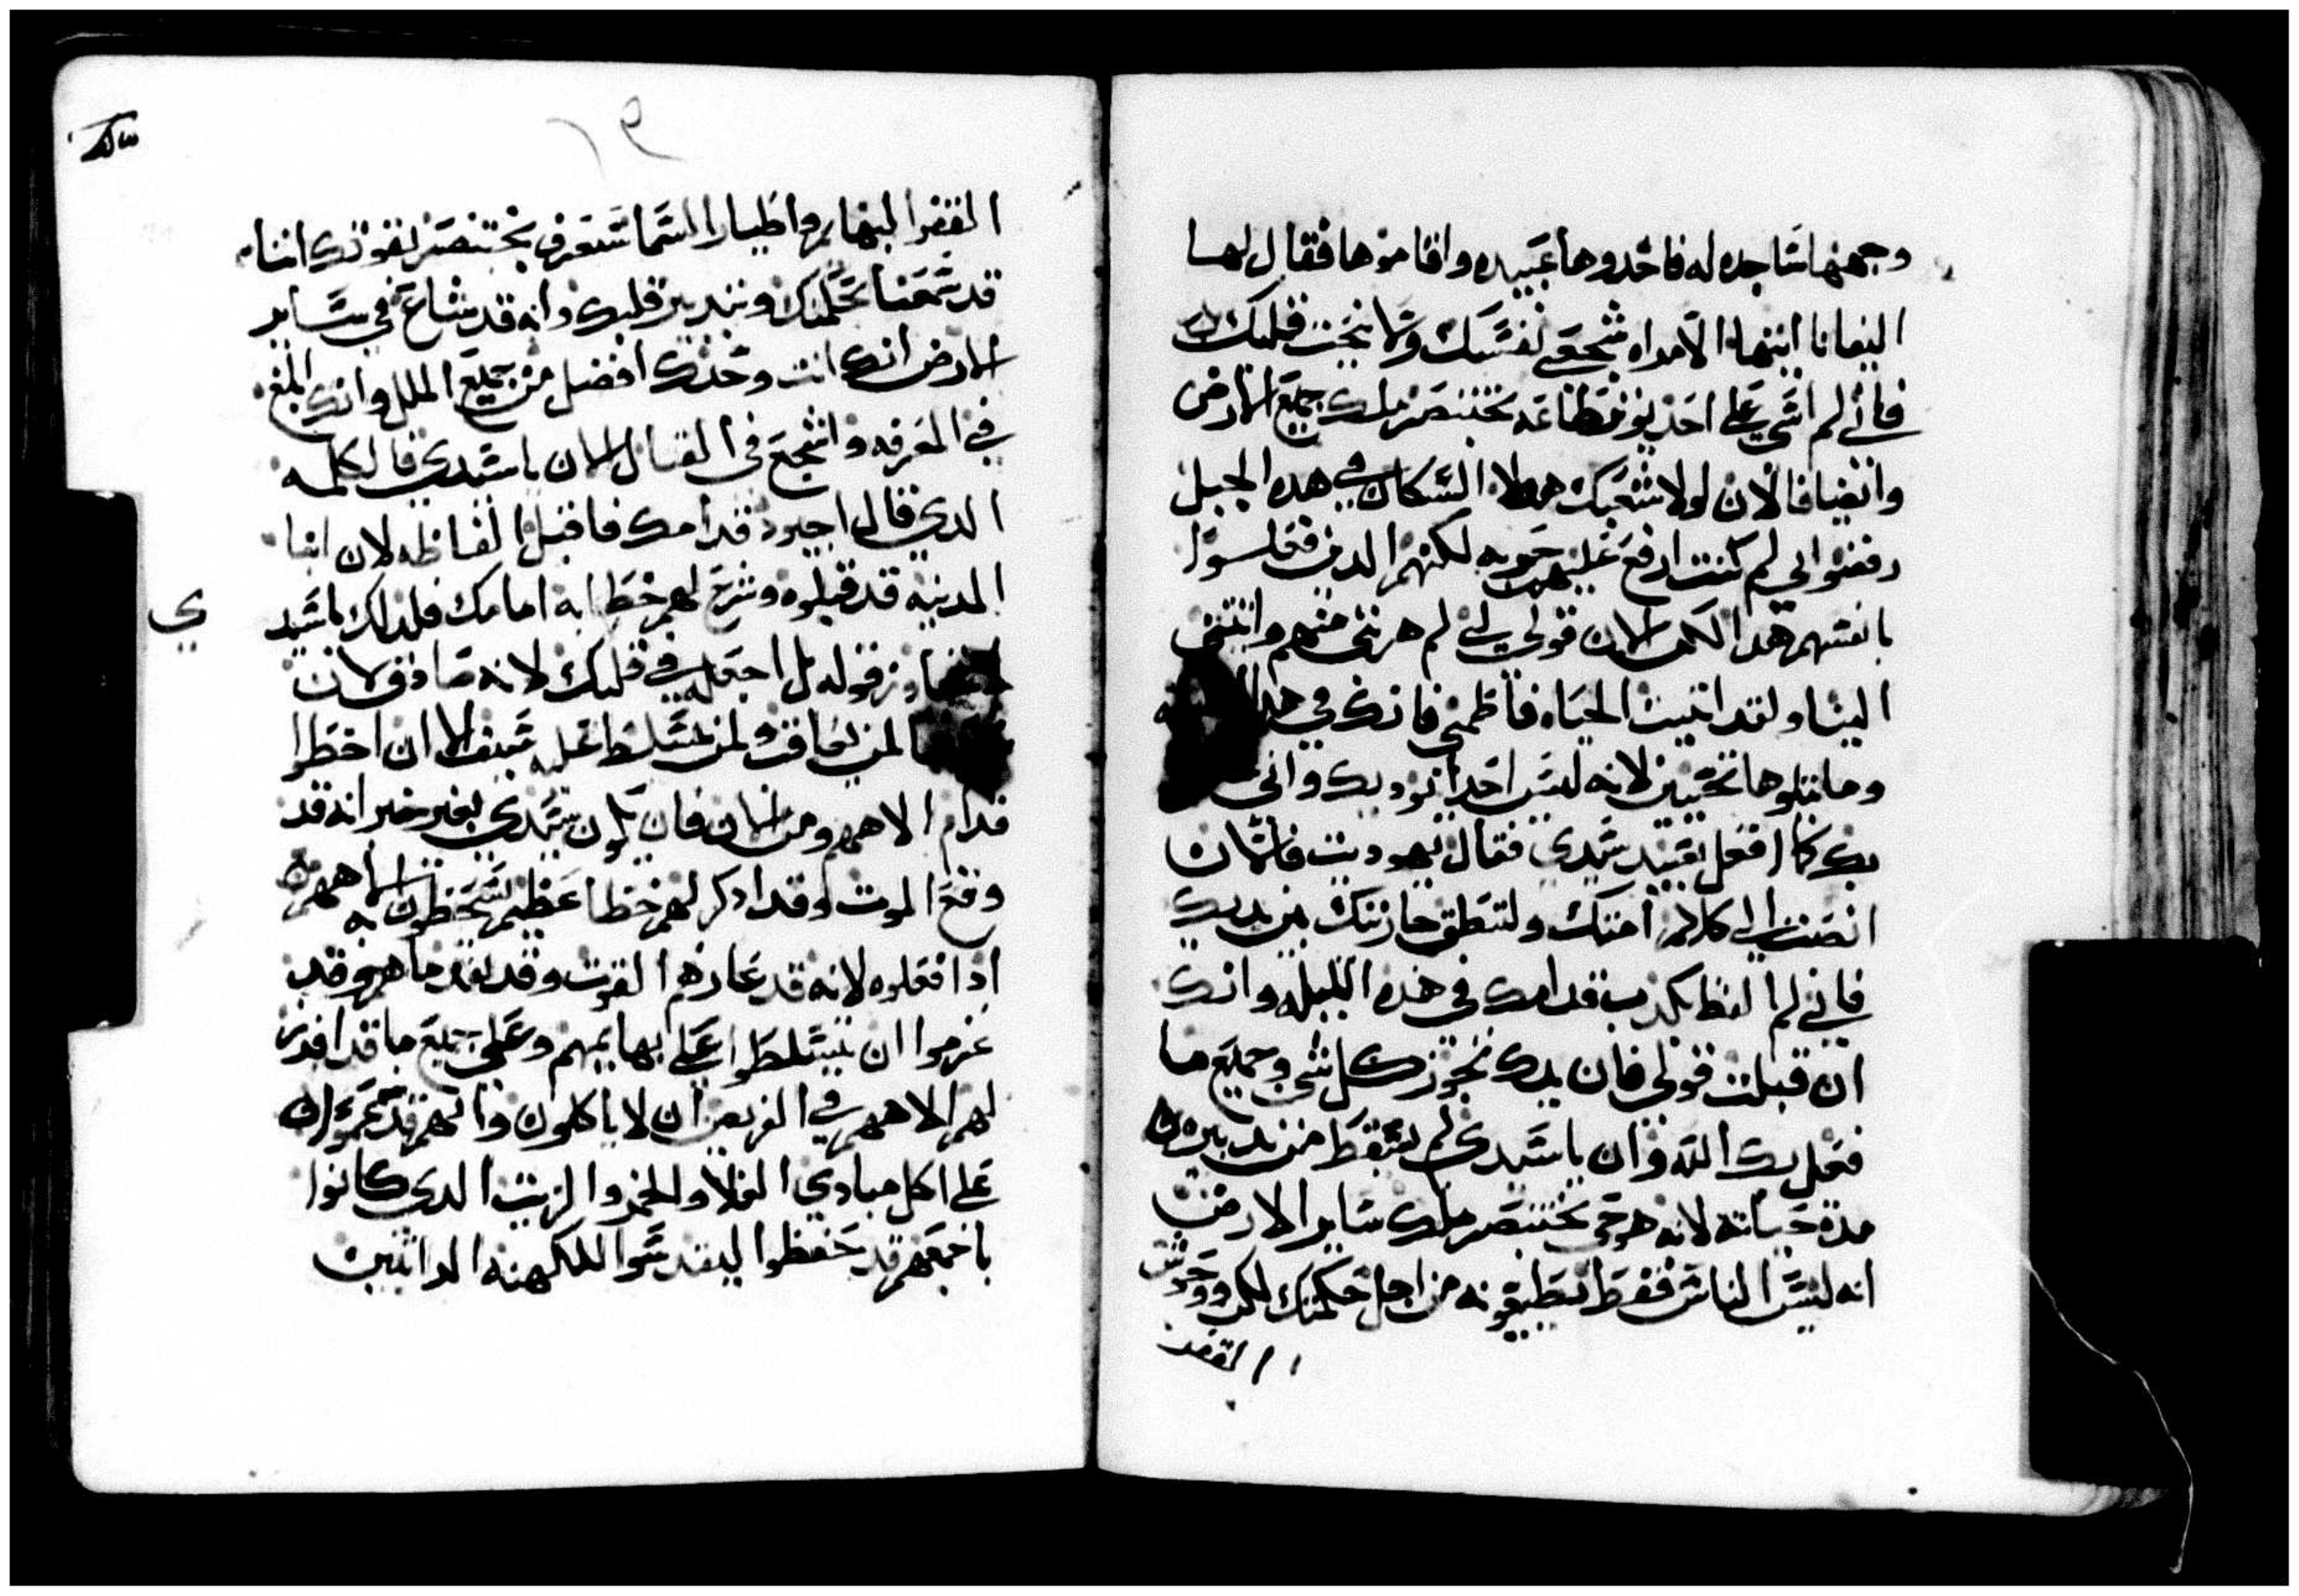 وجهها ساجده له فاخدوها عبيده واقاموها فقال لها
اليفانا ايتها الامراه شجعي نفسك ولا تخف قلبك
فاني لم اسي على احد يوثر طاعه بختنصر ملك جميع الارض
وايضا فالان لولا شعبك هولاء السكان في هده الجبل
رفضوني لم كنت ارفع عليهم حربه لكنهم الدين فعلوا
بانفسهم هدا لكن الان قولي لي لم هربتي منهم واتيتي
الينا ولقد اتيت الحياه فاطمني فانك في هده
وما يتلوها تحيين لانه ليس احدا يوديك واني
بك كما افعل بعبيد سيدي فقال يهوديت فالان
انصت الى كلام امتك ولتنطق جاريتك بين يديك
فاني لم الفظ بكدب قدامك في هذه الليله وانك
ان قبلت قولي فان يدك تجوز كل شي وجميع ما
فعل بك الله وان ياسيدي لم يسقط من تدبيره
مدة حياته لانه هو حي بختنصر ملك ساير الارض
انه ليس الناس فقط يطيعونه من اجل حكمتك لكن ووحوش
القفر
٢٩
القفر والبهايم واطيار السما ستعرف بختنصر بقوتك اننا
قد سمعنا بحكمتك وتدبير قلبك وانه قد شاع في ساير
الارض انك انت وحدك افضل من جميع الملل وانك ابلغ
في المعرفه واشجع في القتال الان ياسيدي فالكلمه
الدي قالها اجيود قدامك فاقبل الفاظه لان ابنا
المدينه قد قبلوه وشرح لهم خطابه امامك فلدلك ياسيد
ي
قوله بل اجعله في قلبك لانه صادق لان
لن يعاقب ولن يتسلط عليه سيف الا ان اخطوا
قدام الاههم ومن الان فان يكون سيدي بغير خبر انه قد
وقع الموت وقد ادكر لهم خطا عظيم يسخطون به الاههم
ادا فعلوه لانه قد عازهم القوت وقد نفد ماهم وقد
عزموا ان يتسلطوا على بهايمهم وعلى جميع ما قد افرز
لهم الاههم في الفريض ان لا ياكلون وانهم قد عزموا
على اكل مبادي الغلا والخمر والزيت الدي كانوا
باجمعهم قد حفظوا ليقدسوا للكهنه الداتيين